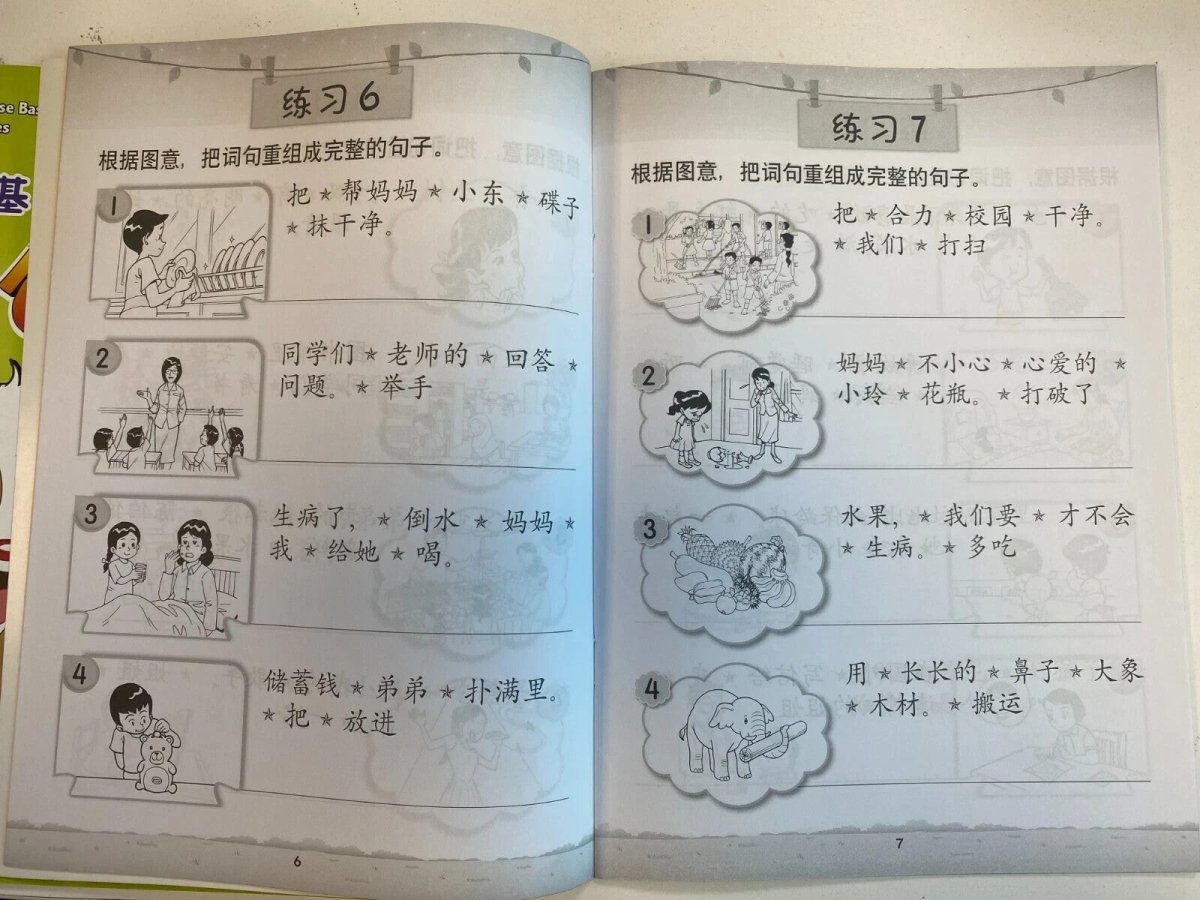 se Bas
es
基
练习6
根据图意，把词句重组成完整的句子。
1
把 ★ 帮妈妈 ★ 小东 ★ 碟子
★ 抹干净。
2
同学们 ★ 老师的 ★ 回答 ★
问题。 ★ 举手
3
生病了， ★ 倒水 ★ 妈妈 ★
我 ★ 给她 ★ 喝。
4
储蓄钱 ★ 弟弟 ★ 扑满里。
★ 把 ★ 放进
6
练习7
根据图意，把词句重组成完整的句子。
1
把 ★ 合力 ★ 校园 ★ 干净。
★ 我们 ★ 打扫
2
妈妈 ★ 不小心 ★ 心爱的 ★
小玲 ★ 花瓶。 ★ 打破了
3
水果， ★ 我们要 ★ 才不会
★ 生病。 ★ 多吃
4
用 ★ 长长的 ★ 鼻子 ★ 大象
★ 木材。 ★ 搬运
7